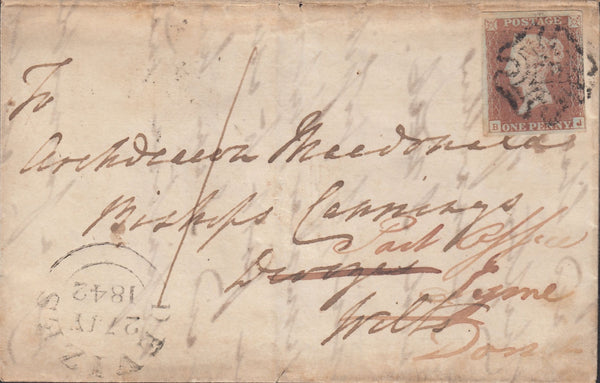 POSTAGE
B ONE PENNY J
To
Archdeacon Macdonald
Bishops Cannings
Post Office
Devizes Lyme
Wilts
Dors
DEVIZES
27 JY
1842
1